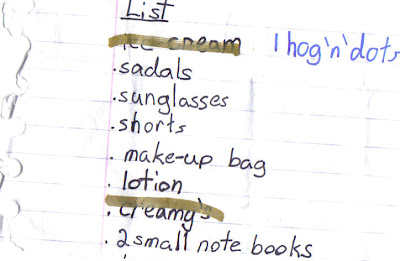 List
ice cream 1 hog'n'dots
.sadals
.sunglasses
.shorts
. make-up bag
. lotion
. creamy's
. 2 small note books